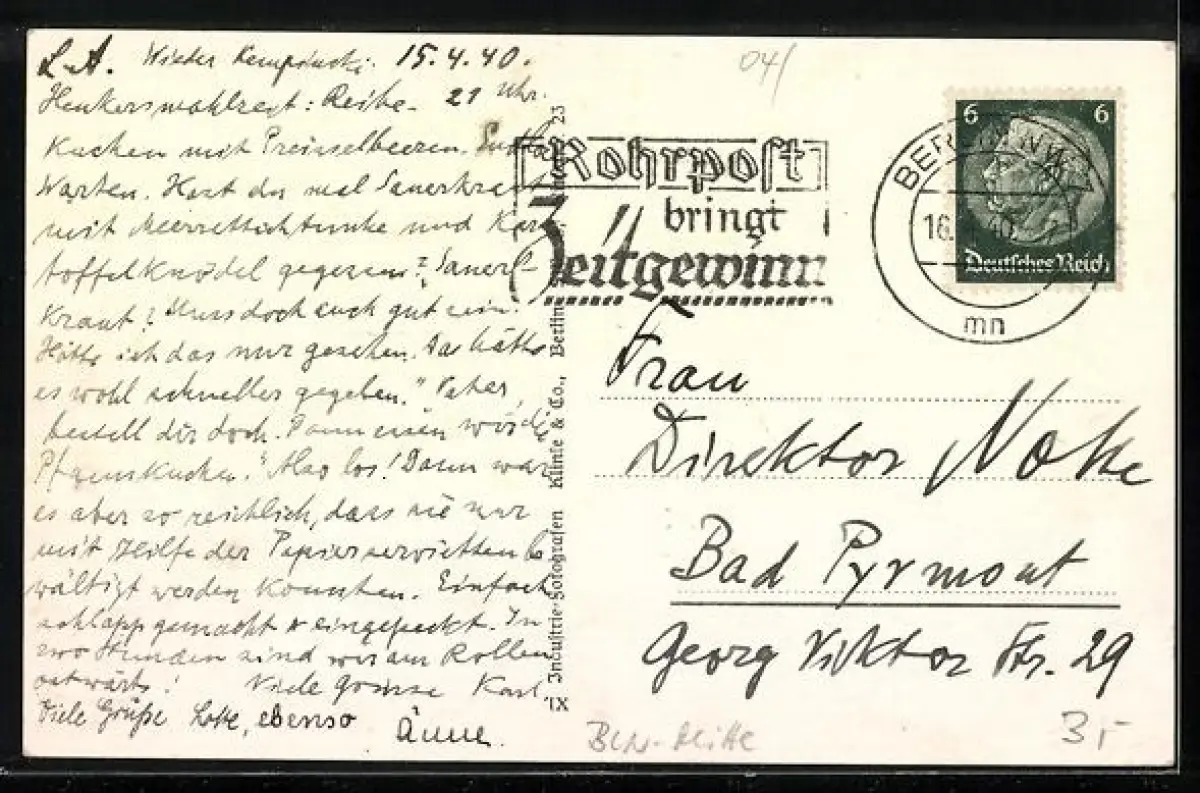 L. A. Wieder Kempinski. 15.4.40.
Henkersmahlzeit: Reibe- 21 Uhr.
Kuchen mit Preisselbeeren.
Warten. Hast du mal Sauerkraut
mit Meerrettichtunke und Kar-
toffelknödel gegessen? Sauer-
Kraut? Muss doch auch gut sein.
Hätte ich das nur gesehen. Das hätte
es wohl schneller gegeben." Vater,
bestell dir doch. Dann essen wir die
Pfannskuchen." Also los! Dann war
es aber so reichlich, dass sie nur
mit Hilfe der Papierservietten be
wältigt werden konnten. Einfach
schlapp gemacht & eingepackt. In
zwo Stunden sind wir am Rollen
ostwärts! Viele Grüsse Karl.
Viele Grüße Lotte, ebenso Änne.
04/
Rohrpost
bringt
Zeitgewinn
BERLIN
16.
mn
6 6
Deutsches Reich
Frau
Direktor Nolte
Bad Pyrmont
Georg Viktor Str. 29
IX Industrie-Fotografen Klinke & Co., Berlin 23
Bln-Mitte
3,-